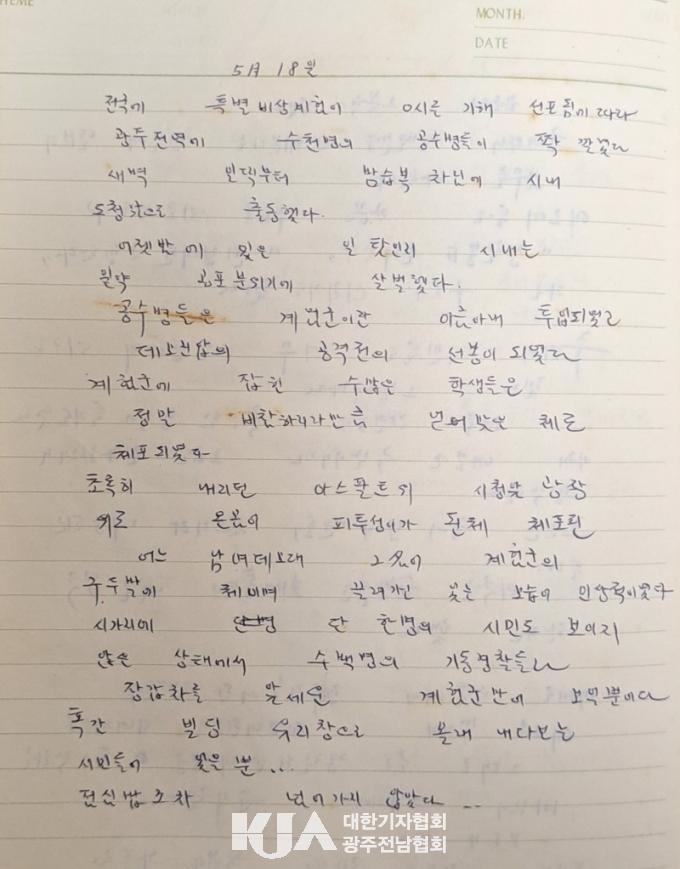 HEME
MONTH.
DATE
5月 18일
전국에 특별비상계엄이 0시를 기해 선포됨에 따라
광주전역에 수천명의 공수병들이 쫙 깔렸다
새벽 일찍부터 밤습복 차림에 시내
도청앞으로 출동했다.
어젯밤에 있은 일 탓인지 시내는
원약 공포분위기에 살벌했다.
공수병들은 계엄군이란 이름아래 투입되었고
데모진압의 공격전의 선봉이 되었다
계엄군에 잡힌 수많은 학생들은
정말 비참하리라만큼 얻어맞은 체로
체포되었다
초록히 내리던 아스팔트위 시청앞 광장
위로 온몸이 피투성이가 된체 체포된
어느 남녀데모대 2名이 계엄군의
구두발에 체이며 끌려가던 모습이 인상적이었다
시가지에 단 한명의 시민도 보이지
않은 상태에서 수백명의 기동경찰들과
장갑차를 앞세운 계엄군만이 보일뿐이다
혹간 빌딩 유리창으로 몰래 내다보는
시민들이 있을 뿐...
점심밥조차 넘어가지 않았다...
KJA 대한기자협회
광주전남협회